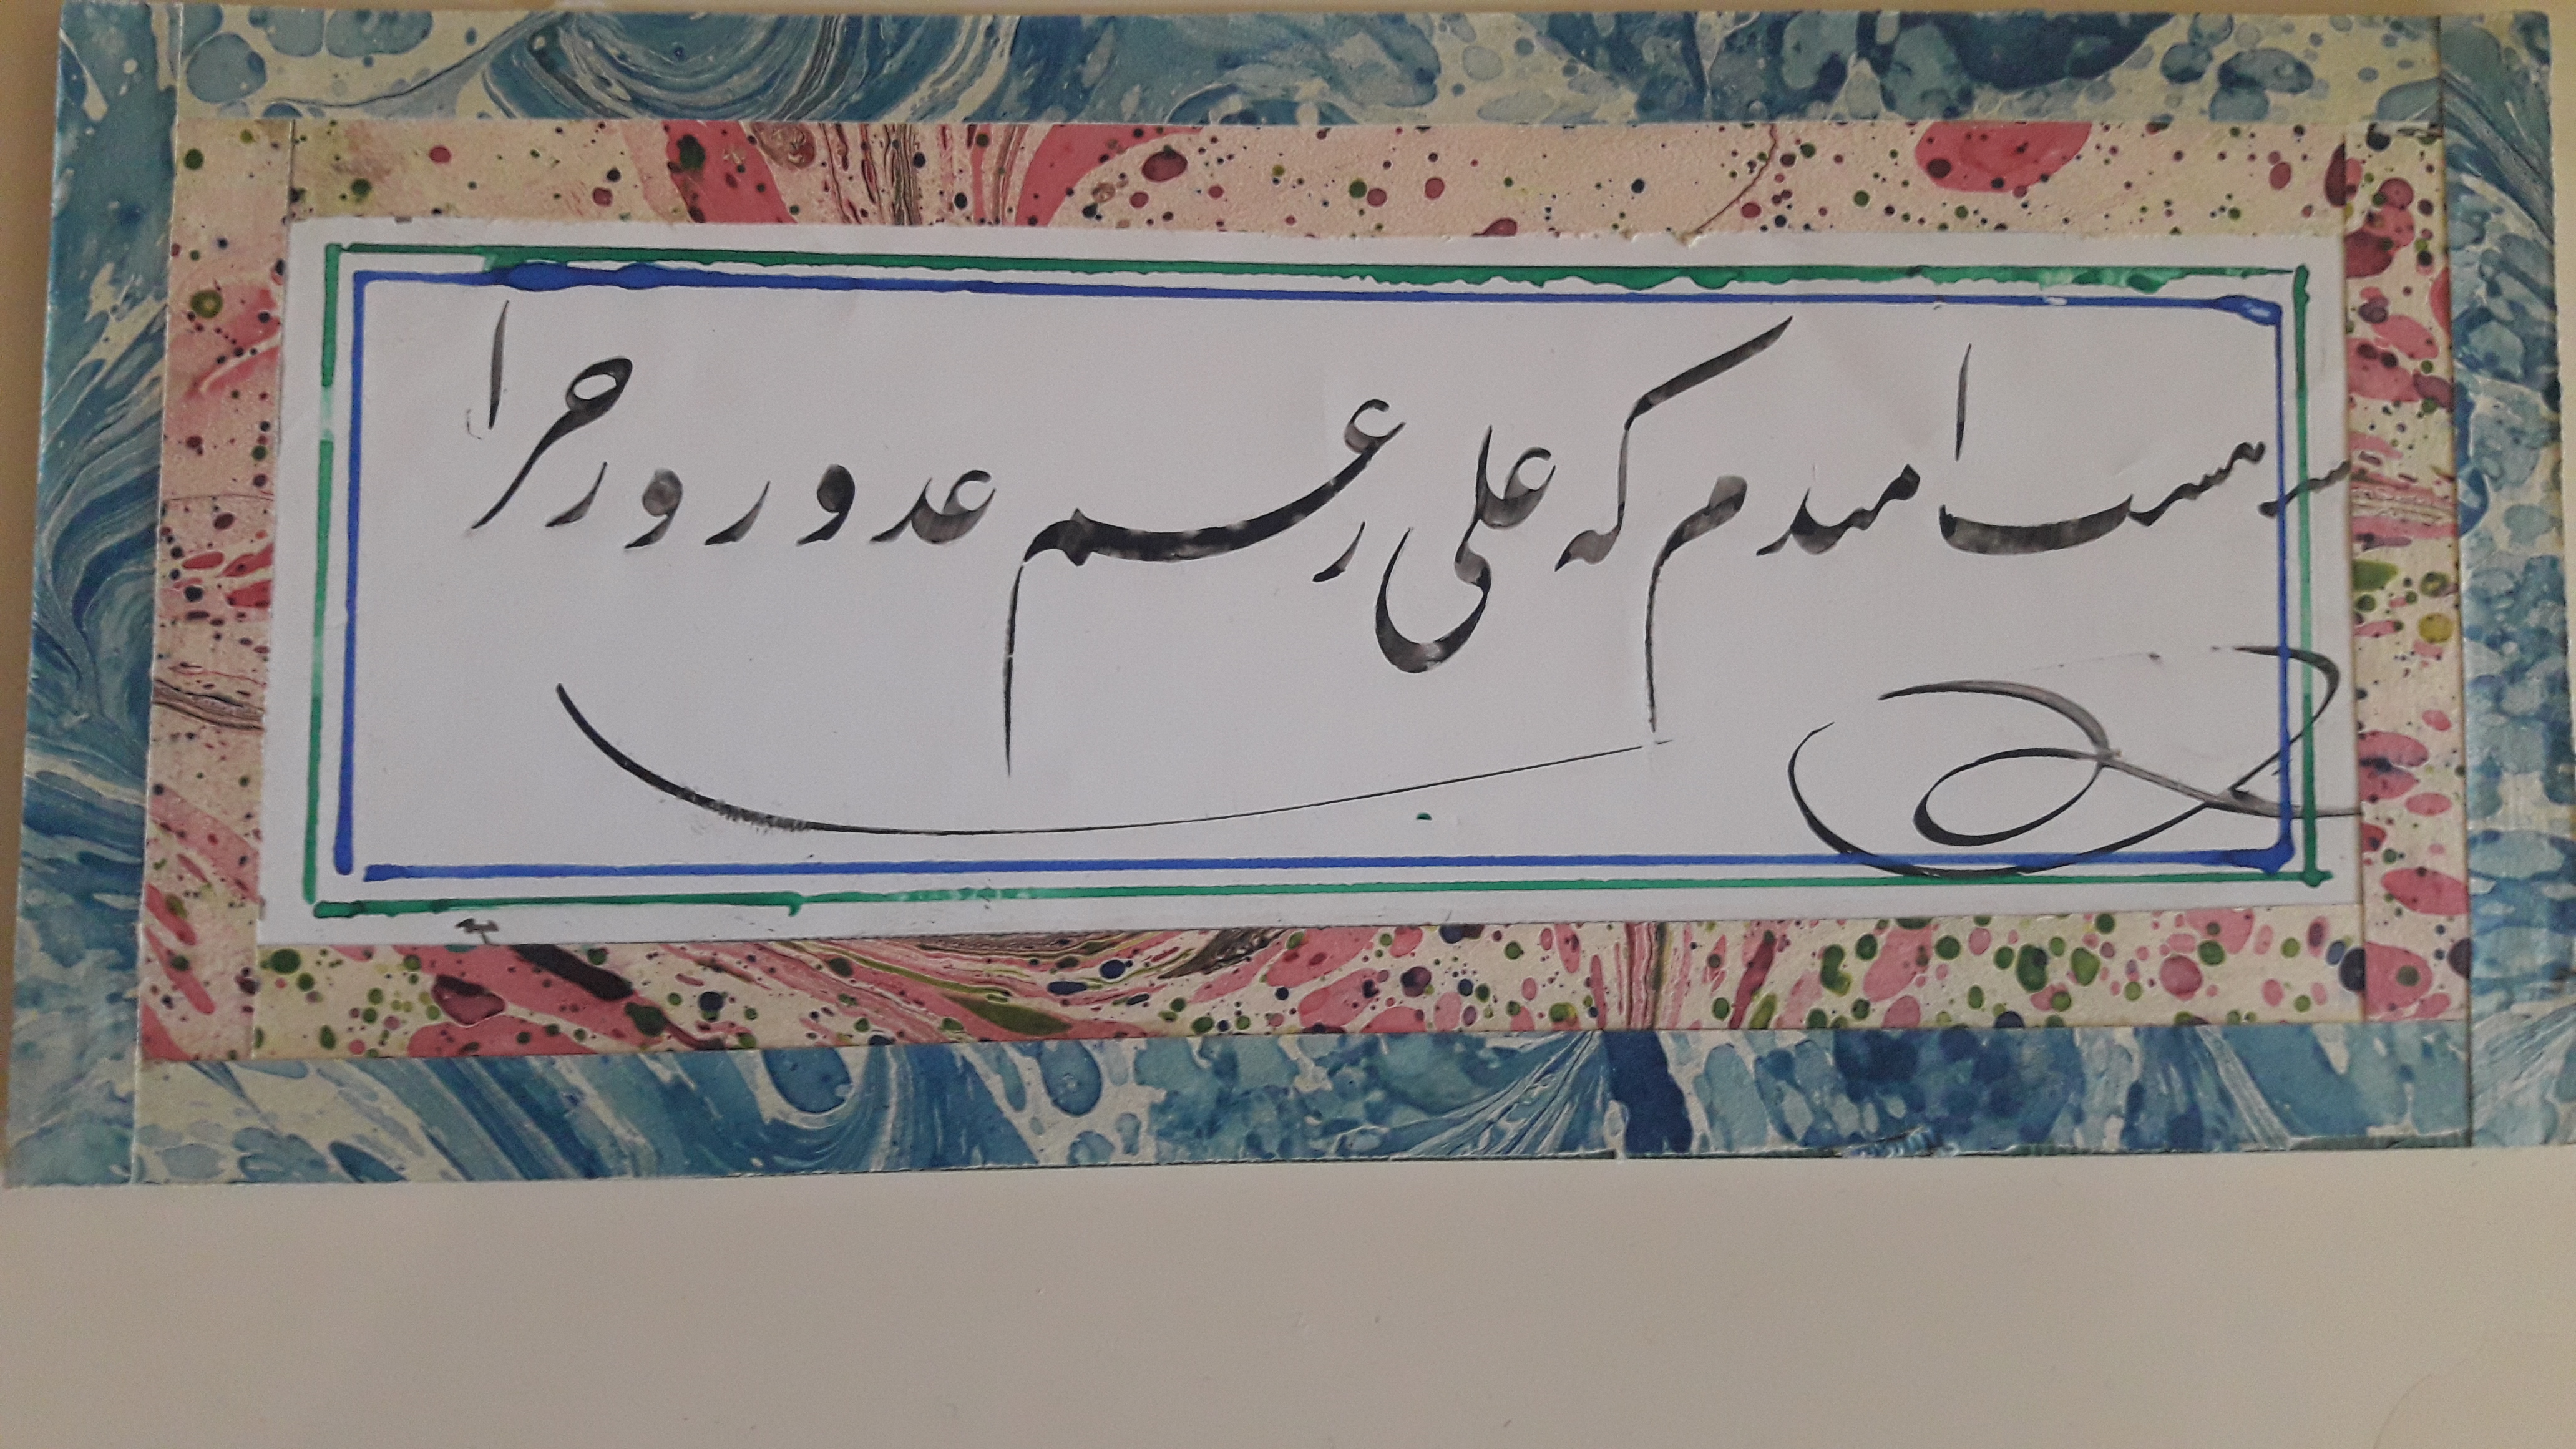 هست امیدم که علی رغم عدو روز جزا